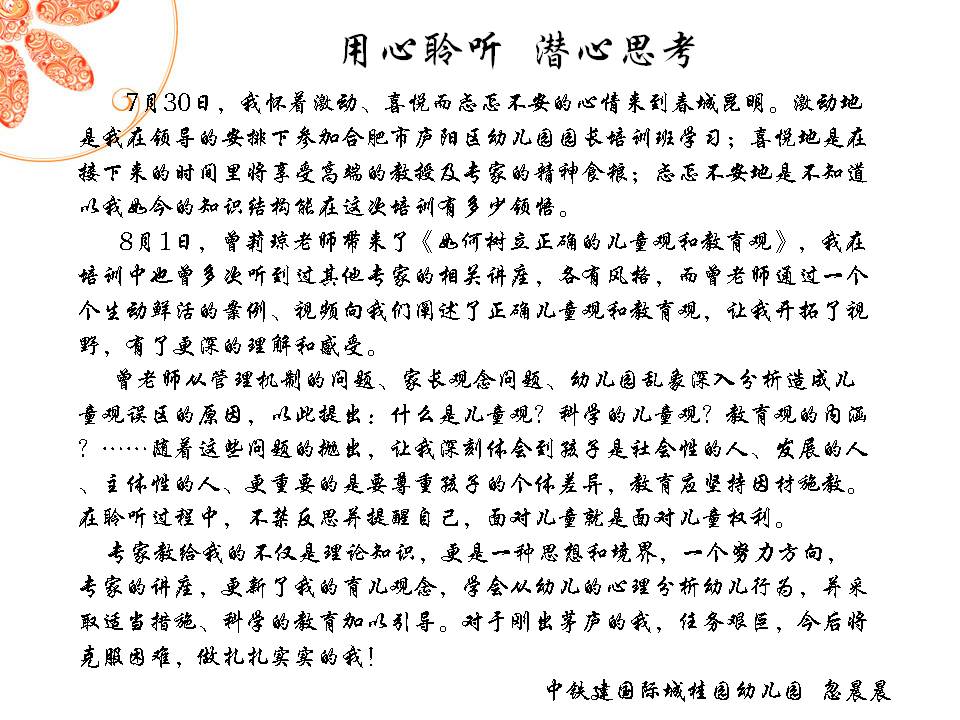 用心聆听 潜心思考
7月30日，我怀着激动、喜悦而忐忑不安的心情来到春城昆明。激动地
是我在领导的安排下参加合肥市庐阳区幼儿园园长培训班学习；喜悦地是在
接下来的时间里将享受高端的教授及专家的精神食粮；忐忑不安地是不知道
以我如今的知识结构能在这次培训有多少领悟。
8月1日，曾莉琼老师带来了《如何树立正确的儿童观和教育观》，我在
培训中也曾多次听到过其他专家的相关讲座，各有风格，而曾老师通过一个
个生动鲜活的案例、视频向我们阐述了正确儿童观和教育观，让我开拓了视
野，有了更深的理解和感受。
曾老师从管理机制的问题、家长观念问题、幼儿园乱象深入分析造成儿
童观误区的原因，以此提出：什么是儿童观？科学的儿童观？教育观的内涵
？……随着这些问题的抛出，让我深刻体会到孩子是社会性的人、发展的人
、主体性的人、更重要的是要尊重孩子的个体差异，教育应坚持因材施教。
在聆听过程中，不禁反思并提醒自己，面对儿童就是面对儿童权利。
专家教给我的不仅是理论知识，更是一种思想和境界，一个努力方向，
专家的讲座，更新了我的育儿观念，学会从幼儿的心理分析幼儿行为，并采
取适当措施、科学的教育加以引导。对于刚出茅庐的我，任务艰巨，今后将
克服困难，做扎扎实实的我！
中铁建国际城桂园幼儿园 忽晨晨